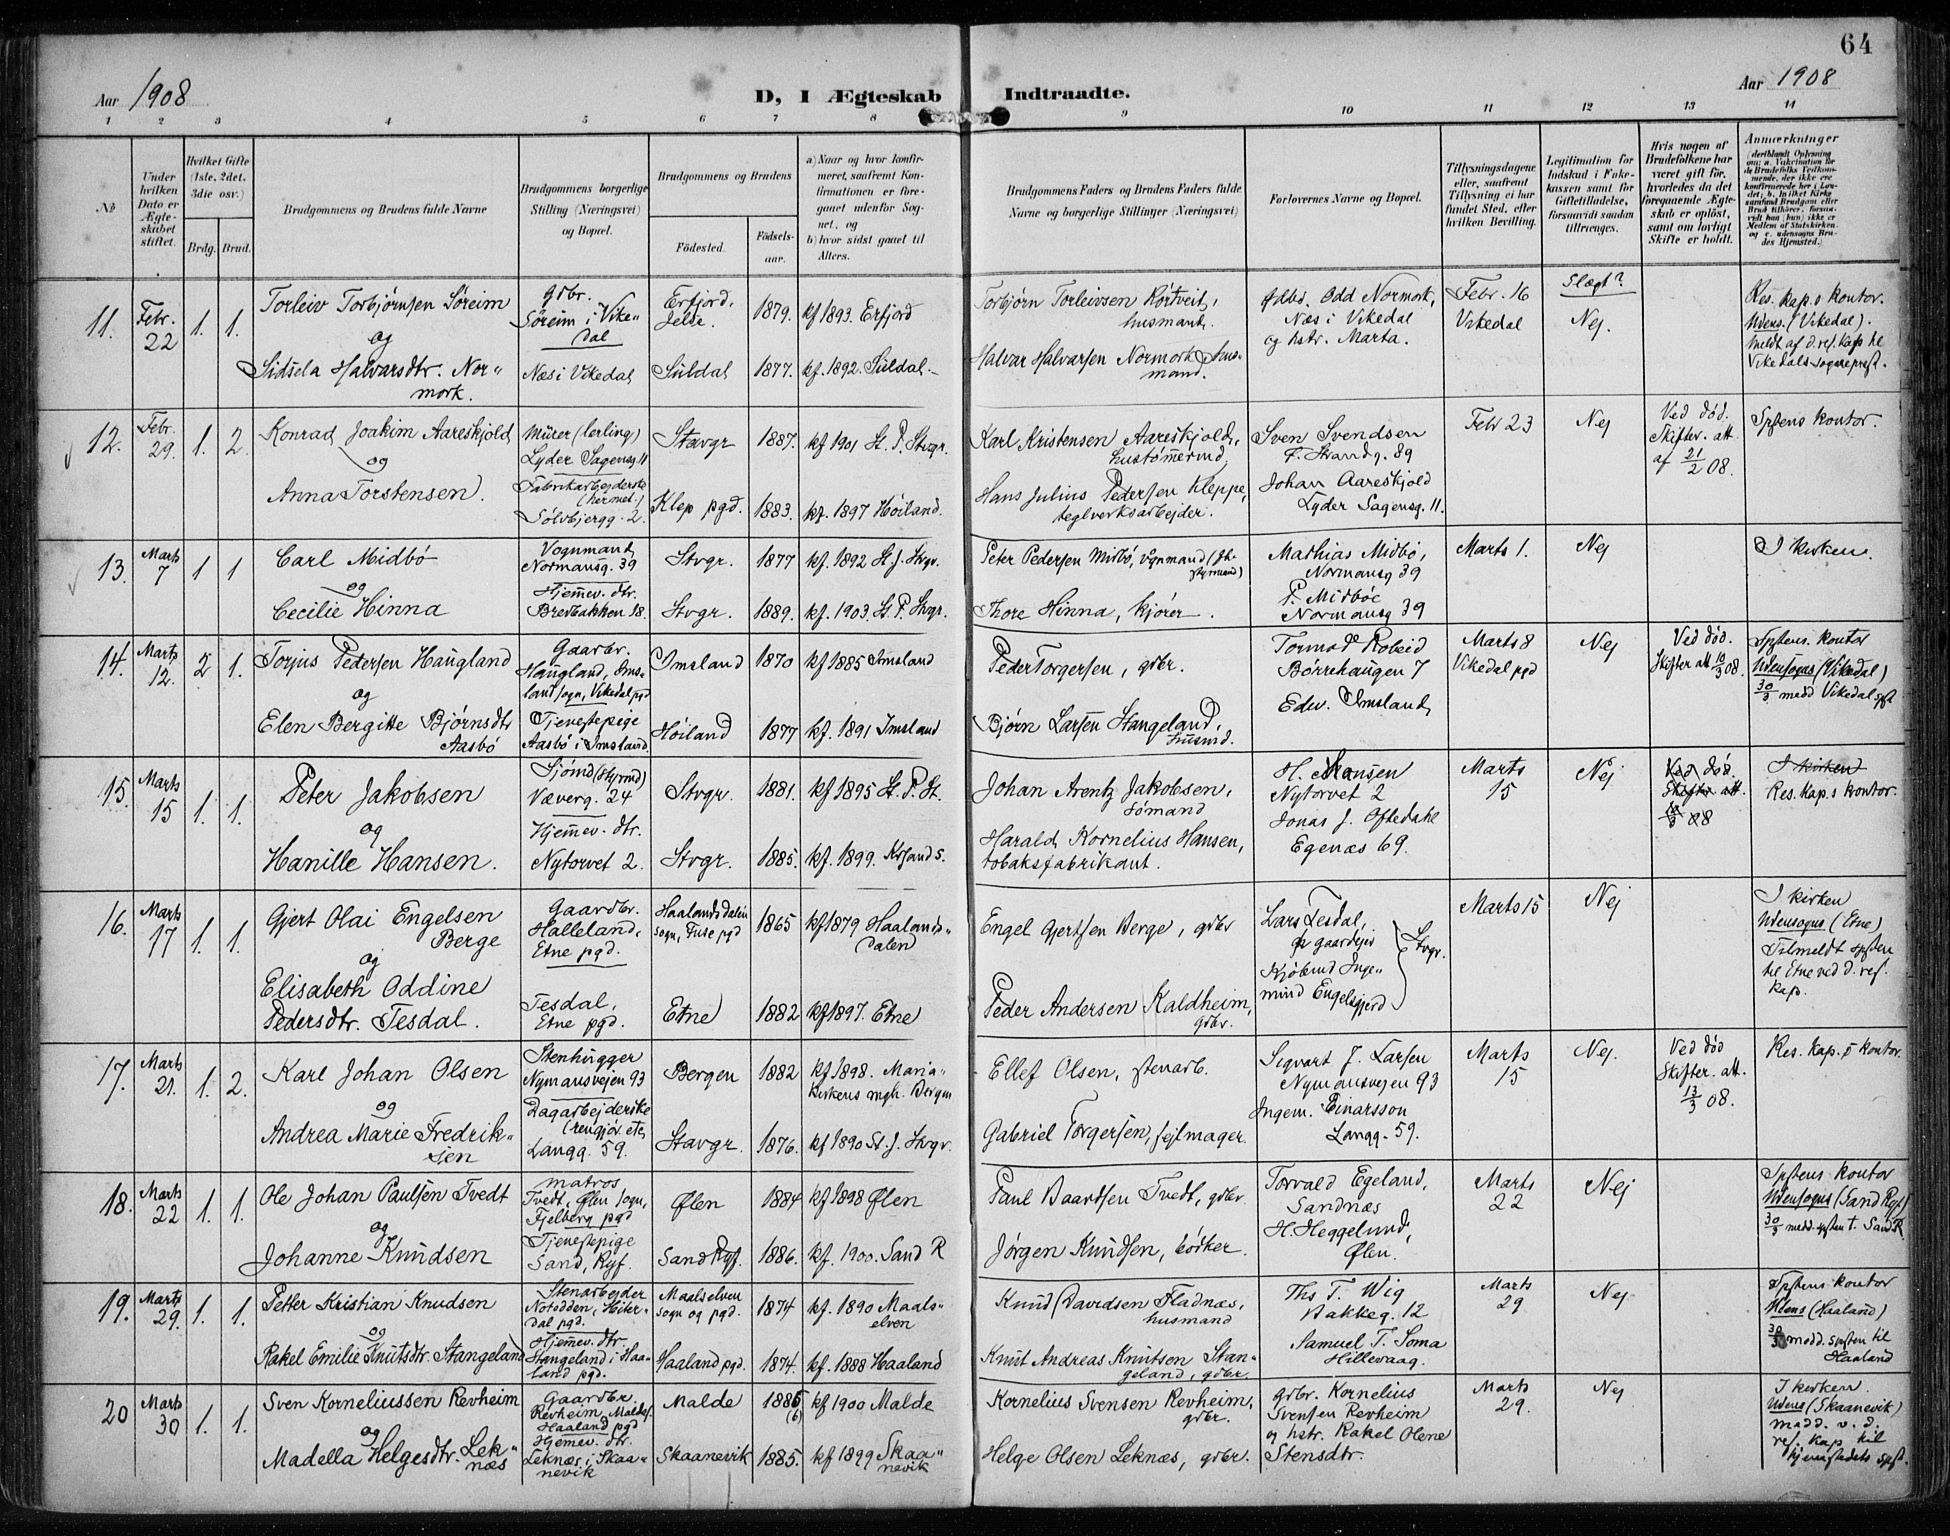 64
Aar 1908
D, I Ægteskab Indtraadte.
Aar 1908
1 2 3 4 5 6 7 8 9 10 11 12 13 14
№
Under hvilken Dato er Ægteskabet stiftet.
Hvilket Gifte (1ste, 2det, 3die osv.)
Brdg. Brud.
Brudgommens og Brudens fulde Navne
Brudgommens borgerlige Stilling (Næringsvei) og Bopæl.
Brudgommens og Brudens
Fødested.
Fødselsaar.
a) Naar og hvor konfirmeret, saafremt Konfirmationen er foregaaet udenfor Sognet, og
b) hvor sidst gaaet til Alters.
Brudgommens Faders og Brudens Faders fulde Navne og borgerlige Stillinger (Næringsvei)
Forlovernes Navne og Bopæl.
Tillysningsdagene eller, saafremt Tillysning ei har fundet Sted, efter hvilken Bevilling.
Legitimation for Indskud i Enkekassen samt for Giftetilladelse, forsaavidt saadan tiltrænges.
Hvis nogen af Brudefolkene har været gift før, hvorledes da det foregaaende Ægteskab er opløst, samt om lovligt Skifte er holdt.
Anmærkninger
11. Febr. 22 1. 1.
Torleiv Torbjørnsen Søreim
og
Sidsela Halvarsdtr. Normork.
Gdbr. Søreim i Vikedal
Næs i Vikedal
Erfjord, Jelse. 1879. kf 1893. Erfjord
Suldal 1877. kf. 1892. Suldal.
Torbjørn Torleivsen Rørtveit, husmand.
Halvar Halvarsen Normork, husmand.
Gdbr. Odd Normork, Næs i Vikedal og hstr. Marta.
Febr. 16 Vikedal
Slægt? Nej.
Res. kap.s kontor.
Udens. (Vikedal).
meldt af d. res. kap til Vikedals sogneprest.
12. Febr. 29. 1. 2
Konrad Joakim Aareskjold
og
Anna Torstensen.
Murer (lerling) Lyder Sagensg. 11
Fabrikarbejderske (hermet.) Sølvbjergg. 2.
Stavgr 1887. kf 1901 St. P. Stvgr.
Klep pgd. 1883. kf. 1897 Høiland.
Karl Kristensen Aareskjold, hustømermd.
Hans Julius Pedersen Kleppe, teglverksarbejder.
Sven Svendsen
Ø. Strandg. 89
Johan Aareskjold
Lyder Sagensg. 11.
Febr 23
Nej
Ved død. Skifter. att. af 21/2 08.
Spstens kontor.
13. Marts 7 1 1
Carl Midbø
og
Cecilie Hinna
Vognmand Normansg. 39
Hjemmev. dtr. Bredbakken 18.
Stvgr. 1877 kf. 1892 St. J. Stvgr.
Stvgr. 1889. kf. 1903. St. P. Stvgr.
Peter Pedersen Midbø, vognmand
Thore Hinna, kjører.
Mathias Midbø, Normansg 39
P. Midbøe Normansg 39
Marts 1.
Nej
I kirken.
14. Marts 12. 2 1.
Torjus Pedersen Haugland
og
Elen Bergitte Bjørnsdtr Aasbø
Gaardbr. Haugland, Imsland sogn, Vikedal pgd
Tjenestepige Aasbø i Imsland.
Imsland 1870 kf 1885 Imsland
Høiland 1877 kf. 1891 Imsland
Peder Torgersen, gdbr.
Bjørn Larsen Stangeland, husmd.
Tormod Robeid
Børrehaugen 7
Edw. Imsland
Marts 8 Vikedal pgd
Nej
Ved død. Skifter att 10/3 08.
Spstens kontor
Udensogns (Vikedal)
30/3 medd Vikedal spst
15. Marts 15 1. 1.
Peter Jakobsen
og
Hanille Hansen.
Sjømd (styrmd) Væverg. 24
Hjemmev. dtr. Nytorvet 2.
Stvgr. 1881. kf 1895 St. P. St.
Stvgr. 1885. kf. 1899. Krsand S.
Johan Arentz Jakobsen, sømand
Harald Kornelius Hansen, tobaksfabrikant.
H. Hansen
Nytorvet 2
Jonas J. Oftedahl
Egenæs 69.
Marts 15
Nej
Ved død. Skifter att. 08
I kirken
Res. kap.s kontor.
16. Marts 17 1. 1.
Gjert Olai Engelsen Berge
og
Elisabeth Oddine Pedersdtr. Tesdal.
Gaardbr. Halleland, Etne pgd.
Tesdal, Etne pgd.
Haalandsdalen sogn, Fuse pgd 1865 kf 1879 Haalandsdalen
Etne 1882 kf 1897. Etne
Engel Gjertsen Berge, gdbr
Peder Andersen Kaldheim, gdbr.
Lars Tesdal, gaardejer
Kjøbmd Ingemund Engelsgjerd
Stvgr.
Marts 15
Nej
I kirken
Udensogns (Etne)
Tilmeldt spsten til Etne ved d. res. kap.
17. Marts 21. 1. 2.
Karl Johan Olsen
og
Andrea Marie Fredriksen
Stenhugger Nymansvejen 93
Dagarbejderske (rengjør. etc) Langg. 59.
Bergen 1882 kf 1898. Mariakirkens mgh. Bergen
Stavgr. 1876. kf 1890 St. J. Stvgr.
Ellef Olsen, stenarb.
Gabriel Torgersen, sejlmager.
Sigvart J. Larsen
Nymansvejen 93
Ingem. Einarsson
Langg. 59.
Marts 15
Nej.
Ved død Skifter. att. 13/3 08.
Res. kap.s kontor.
18. Marts 22 1. 1.
Ole Johan Paulsen Tvedt
og
Johanne Knudsen
matros Tvedt, Ølen sogn, Fjelberg pgd
Tjenestepige Sand, Ryf.
Ølen 1884 kf 1898 Ølen
Sand Ryf. 1886. kf. 1900. Sand R
Paul Baardsen Tvedt, gdbr
Jørgen Knudsen, bødker.
Torvald Egeland, Sandnæs
H. Heggelund, Ølen.
Marts 22
Nej
Spstens kontor
Udensogns (Sand Ryf)
30/3 medd. spsten t. Sand R.
19. Marts 29. 1. 1.
Petter Kristian Knudsen
og
Rakel Emilie Knutsdtr. Stangeland
Stenarbejder Notodden, Hiterdal pgd.
Hjemmev. dtr. Stangeland i Haaland pgd.
Maalselven sogn og pgd. 1874 kf. 1890 Maalselven
Haaland pgd. 1874. kf. 1888 Haaland
Knud Davidsen Fladnæs, husmand
Knut Andreas Knutsen Stangeland, gdbr.
Ths T. Wig
Bakkeg. 12
Samuel T. Soma
Hillevaag.
Marts 29
Nej
Spstens kontor
Udens (Haaland)
30/3 medd. spsten til Haaland
20 Marts 30 1. 1.
Sven Korneliussen Revheim
og
Madella Helgesdtr. Leknæs
Gaardbr Revheim, Malde s. Haaland pgd
Hjemev. dtr. Leknæs i Skaanevik
Malde 1885 (6) kf 1900 Malde
Skaanevik 1885. kf 1899 Skaanevik
Kornelius Svensen Revheim, gdbr.
Helge Olsen Leknæs, gdbr.
gdbr. Kornelius Svensen Revheim og hstr. Rakel Olene Stensdtr.
Marts 29.
Nej
I kirken.
Udens (Skaanevik)
medd. v. d. res. kap til hjemstedets spst.